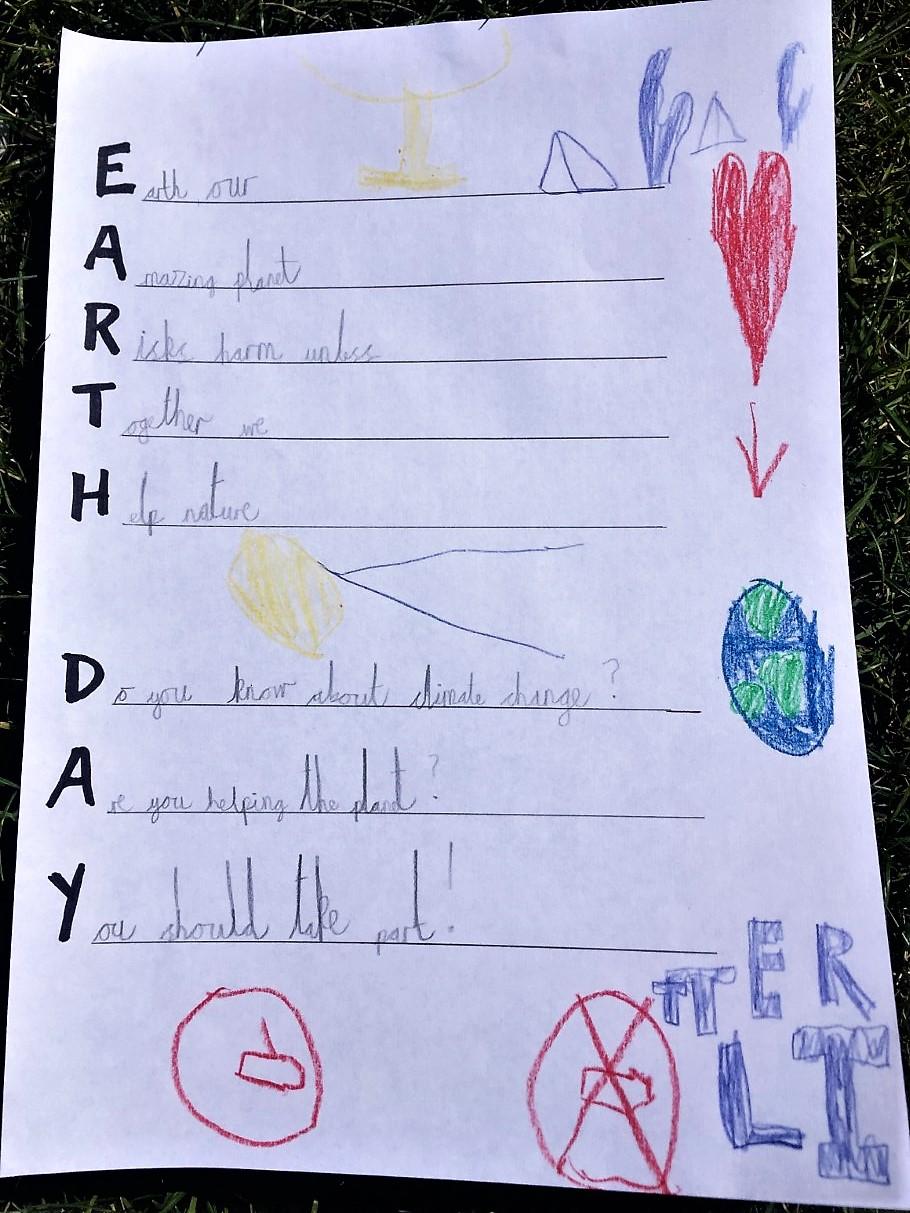 Earth our
Amazing planet
Risks harm unless
Together we
Help nature
Do you know about climate change ?
Are you helping the planet ?
You should take part !
TTER
LI